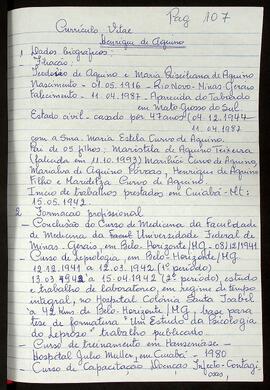 Pag 107
Curriculo Vitae
Henrique de Aquino
1 Dados biográficos:
- Filiação:
Teodosio de Aquino e Maria Brisiliana de Aquino
Nascimento - 01.05.1916 - Rio Novo - Minas Gerais
Falecimento - 11.04.1987 - Aparecida do Taboado
em Mato Grosso do Sul
Estado civil - casado por 47 anos (04.12.1944 -
11.04.1987
com a Snra: Maria Estela Curvo de Aquino.
Pai de 05 filhos: Maristela de Aquino Teixeira
(falecida em 11.10.1993) Mariluci Curvo de Aquino,
Marialva de Aquino Póvoas, Henrique de Aquino
Filho e Maridelza Curvo de Aquino.
Inicio de trabalhos prestados em Cuiabá - MT:
15.05.1942.
2 Formação profissional
- Conclusão do Curso de Medicina da Faculdade
de Medicina da Universidade Federal de
Minas Gerais, em Belo Horizonte/MG - 08/12/1941
- Curso de Leprologia, em Belo Horizonte/MG
12.12.1941 a 12.03.1942 (1º período)
13.03.1942 a 15.04.1942 (2º período) estudo
e trabalho de laboratório, em regime de tempo
integral, no Hospital Colônia Santa Isabel
a 42 Kms de Belo Horizonte/MG, base para
tese de formatura "Um Estudo da Psicologia
do Leproso" trabalho publicado.
- Curso de treinamento em Hanseníase -
Hospital Julio Muller, em Cuiabá - 1980
- Curso de Capacitação Doenças Infecto-Contagi
osas